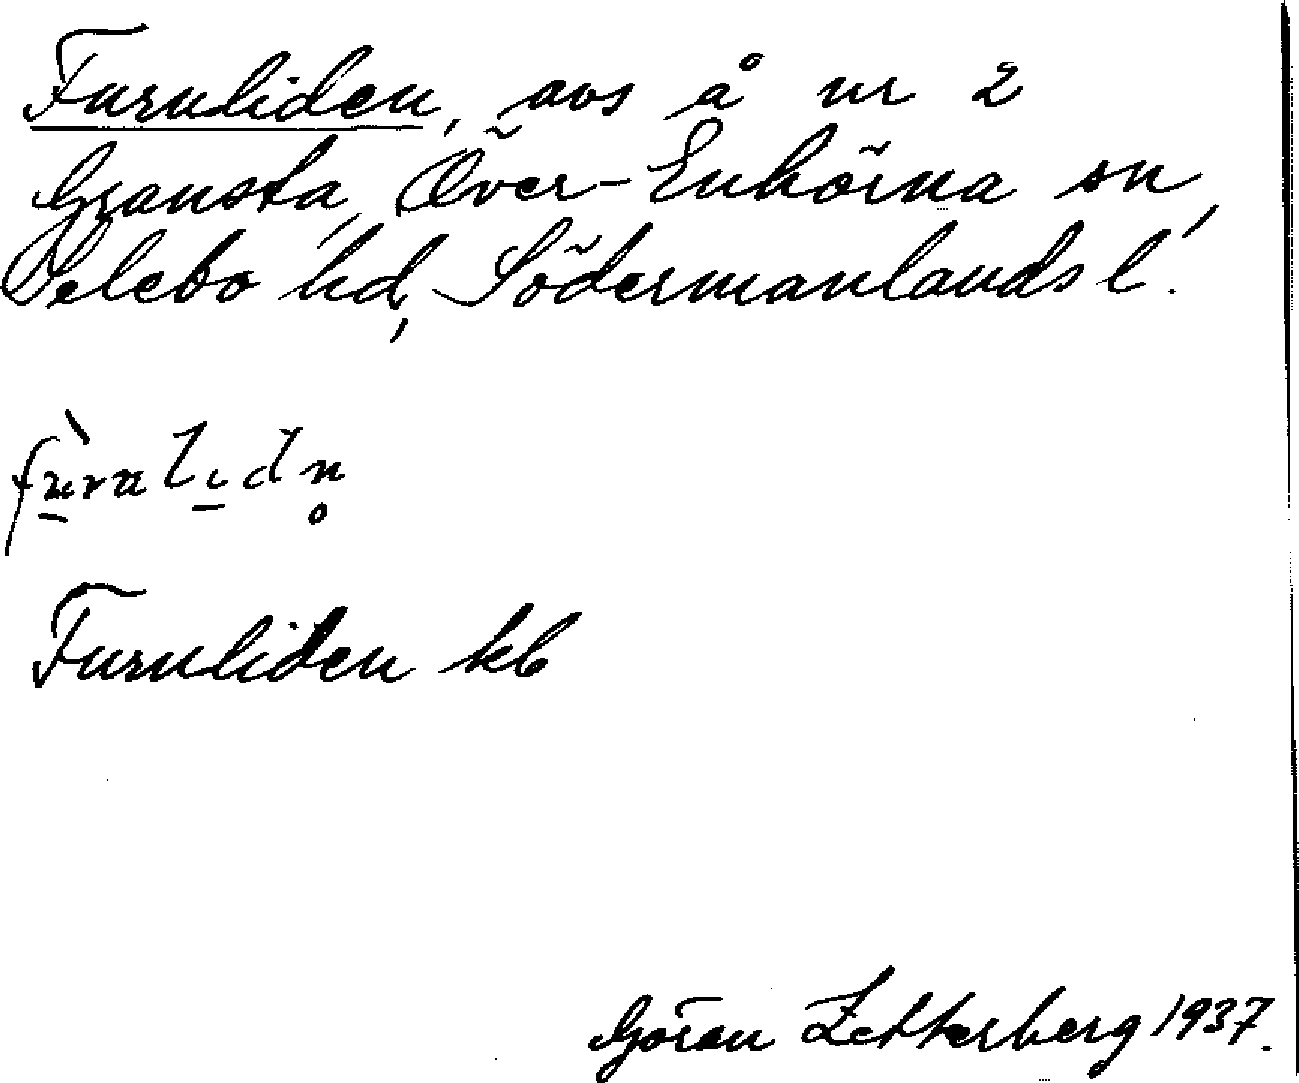 Furuliden, avs å nr 2
Gransta, Över-Enhörna sn,
Selebo hd, Södermanlands l.
fùralidn̥
Furuliden kb
Göran Zetterberg 1937.